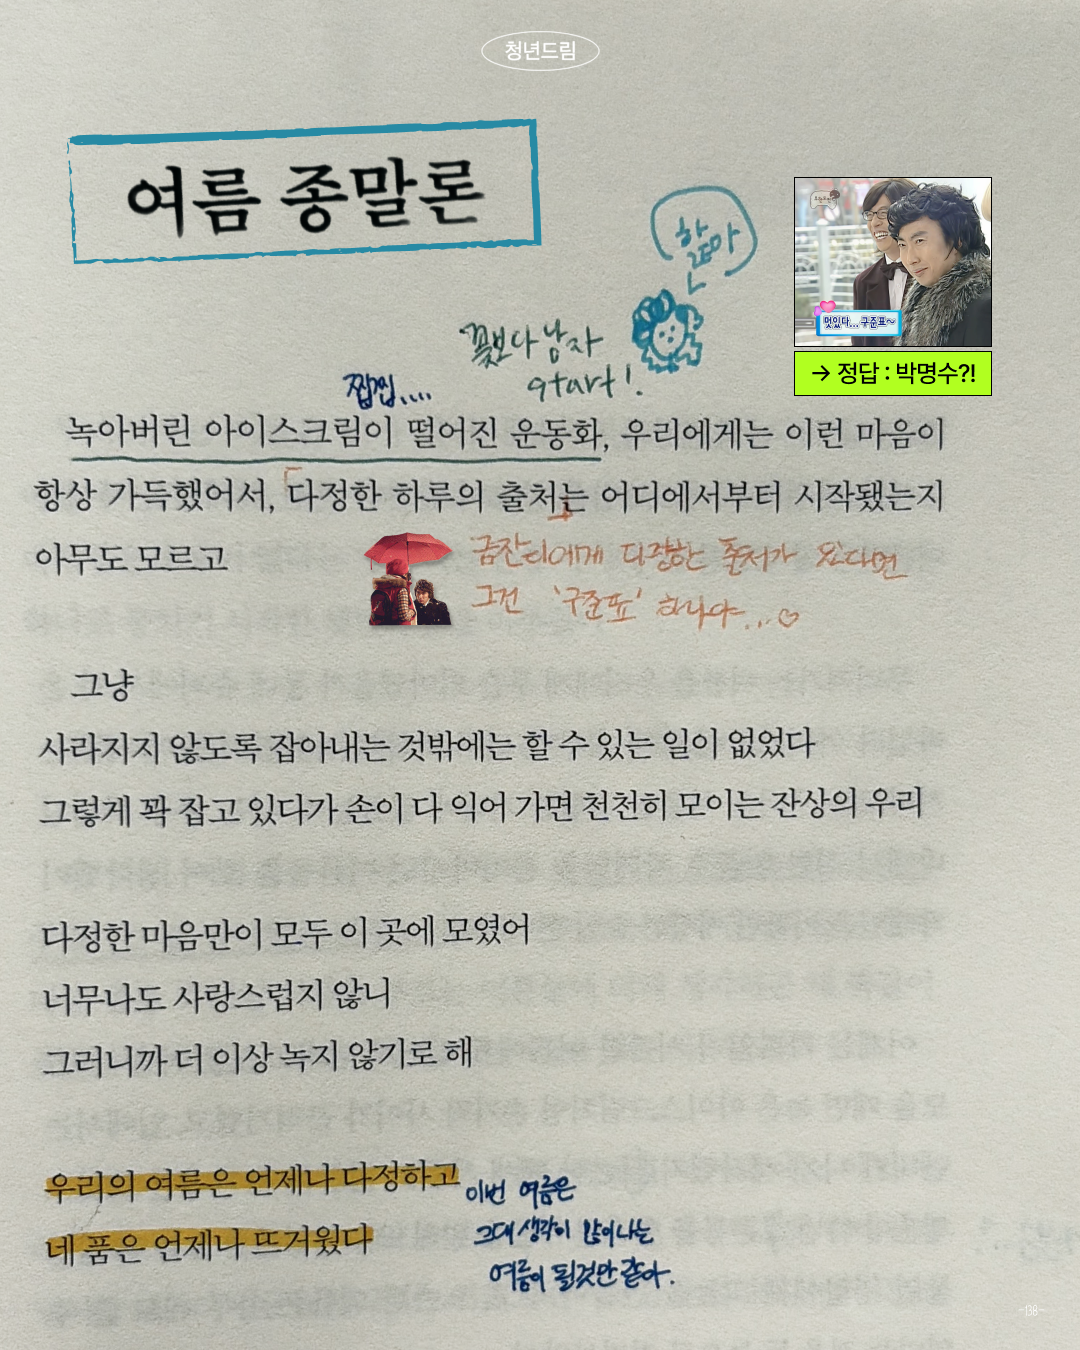 청년드림
여름 종말론
핥아
멋있다... 구준표~
→ 정답 : 박명수?!
꽃보다 남자
start!
찝찝....
녹아버린 아이스크림이 떨어진 운동화, 우리에게는 이런 마음이
항상 가득했어서, 다정한 하루의 출처는 어디에서부터 시작됐는지
아무도 모르고
금잔디에게 다정한 출처가 있다면
그건 '구준표' 하나야...♡
그냥
사라지지 않도록 잡아내는 것밖에는 할 수 있는 일이 없었다
그렇게 꽉 잡고 있다가 손이 다 익어 가면 천천히 모이는 잔상의 우리
다정한 마음만이 모두 이 곳에 모였어
너무나도 사랑스럽지 않니
그러니까 더 이상 녹지 않기로 해
우리의 여름은 언제나 다정하고
네 품은 언제나 뜨거웠다
이번 여름은
그대 생각이 많이나는
여름이 될것만 같아.
-138-